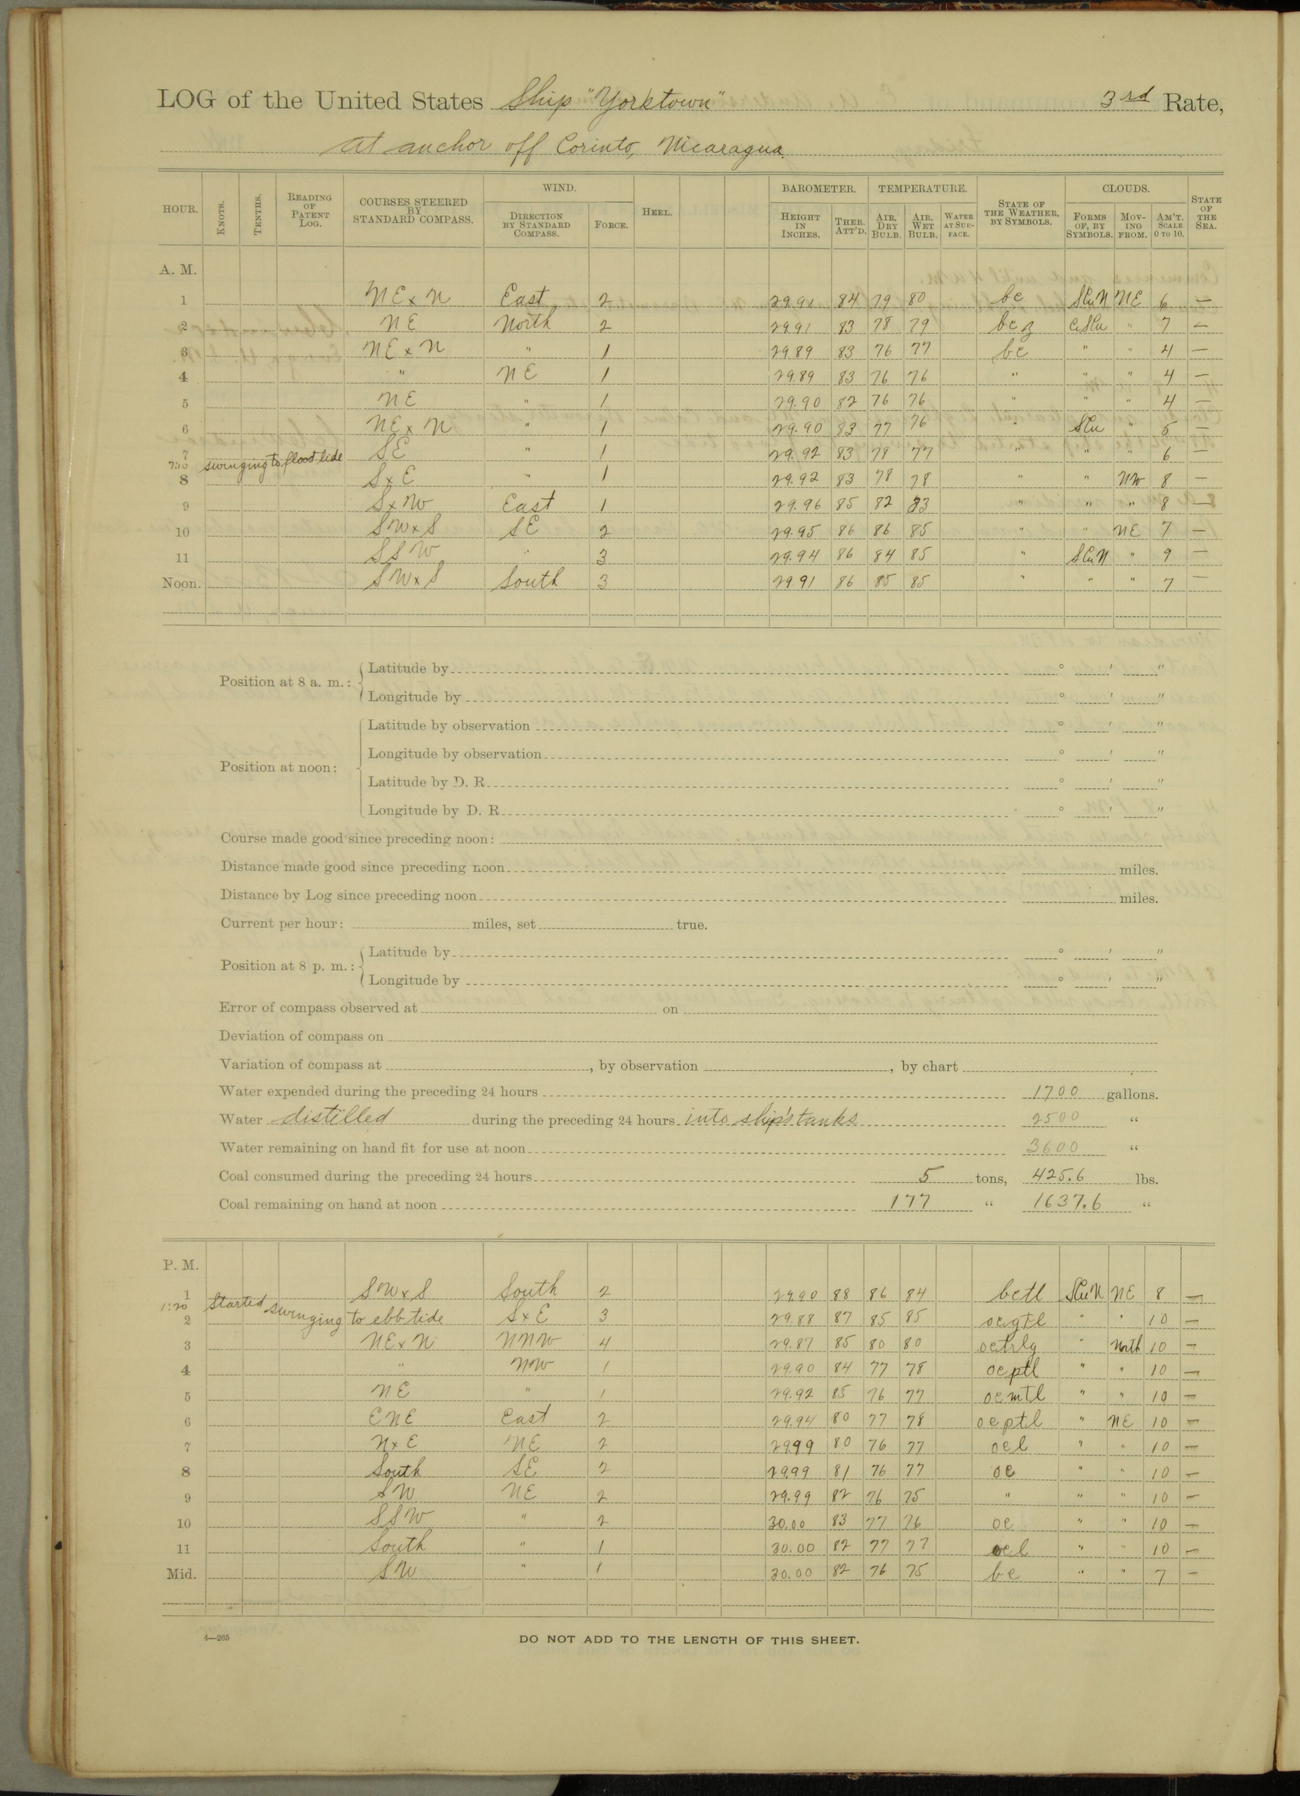 LOG of the United States Ship "Yorktown" 3rd Rate,
At anchor off Corinto, Nicaragua.
HOUR. KNOTS. TENTHS. READING OF PATENT LOG. COURSES STEERED BY STANDARD COMPASS. WIND. DIRECTION BY STANDARD COMPASS. FORCE. HEEL. BAROMETER. HEIGHT IN INCHES. THER. ATT'D. TEMPERATURE. AIR, DRY BULB. AIR, WET BULB. WATER AT SURFACE. STATE OF THE WEATHER, BY SYMBOLS. CLOUDS. FORMS OF, BY SYMBOLS. MOVING FROM. AM'T. SCALE 0 TO 10. STATE OF THE SEA.
A. M.
1 NE x N East 2 29.91 84 79 80 bc SCuN NE 6 —
2 NE North 2 29.91 83 78 79 bcz CiSCu " 7 —
3 NE x N " 1 29.89 83 76 77 bc " " 4 —
4 " NE 1 29.89 83 76 76 " " " 4 —
5 NE " 1 29.90 82 76 76 " " " 4 —
6 NE x N " 1 29.90 83 77 76 " SCu " 5 —
7 SE " 1 29.92 83 78 77 " " " 6 —
7:30 swinging to flood tide
8 S x E " 1 29.92 83 78 78 " " NW 8 —
9 S x W East 1 29.96 85 82 83 " " " 8 —
10 SW x S SE 2 29.95 86 86 85 " " NE 7 —
11 SSW " 3 29.94 86 84 85 " SCuN " 9 —
Noon. SW x S South 3 29.91 86 85 85 " " " 7 —
Position at 8 a. m.: Latitude by ° ' "
Longitude by ° ' "
Position at noon: Latitude by observation ° ' "
Longitude by observation ° ' "
Latitude by D. R. ° ' "
Longitude by D. R. ° ' "
Course made good since preceding noon:
Distance made good since preceding noon miles.
Distance by Log since preceding noon miles.
Current per hour: miles, set true.
Position at 8 p. m.: Latitude by ° ' "
Longitude by ° ' "
Error of compass observed at on
Deviation of compass on
Variation of compass at , by observation , by chart
Water expended during the preceding 24 hours 1700 gallons.
Water distilled during the preceding 24 hours into ship's tanks 2500 "
Water remaining on hand fit for use at noon 3600 "
Coal consumed during the preceding 24 hours 5 tons, 425.6 lbs.
Coal remaining on hand at noon 177 " 1637.6 "
P. M.
1 SW x S South 2 29.90 88 86 84 bctl SCuN NE 8 —
1:20 Started swinging to ebb tide
2 S x E 3 29.88 87 85 85 ocqtl " " 10 —
3 NE x N NNW 4 29.87 85 80 80 octrlq " North 10 —
4 " NW 1 29.90 84 77 78 ocptl " " 10 —
5 NE " 1 29.92 85 76 77 ocmtl " " 10 —
6 ENE East 2 29.94 80 77 78 ocptl " NE 10 —
7 N x E NE 2 29.99 80 76 77 ocl " " 10 —
8 South SE 2 29.99 81 76 77 oc " " 10 —
9 SW NE 2 29.99 82 76 75 " " " 10 —
10 SSW " 2 30.00 83 77 76 oc " " 10 —
11 South " 1 30.00 82 77 77 ocl " " 10 —
Mid. SW " 1 30.00 82 76 75 bc " " 7 —
4—265
DO NOT ADD TO THE LENGTH OF THIS SHEET.